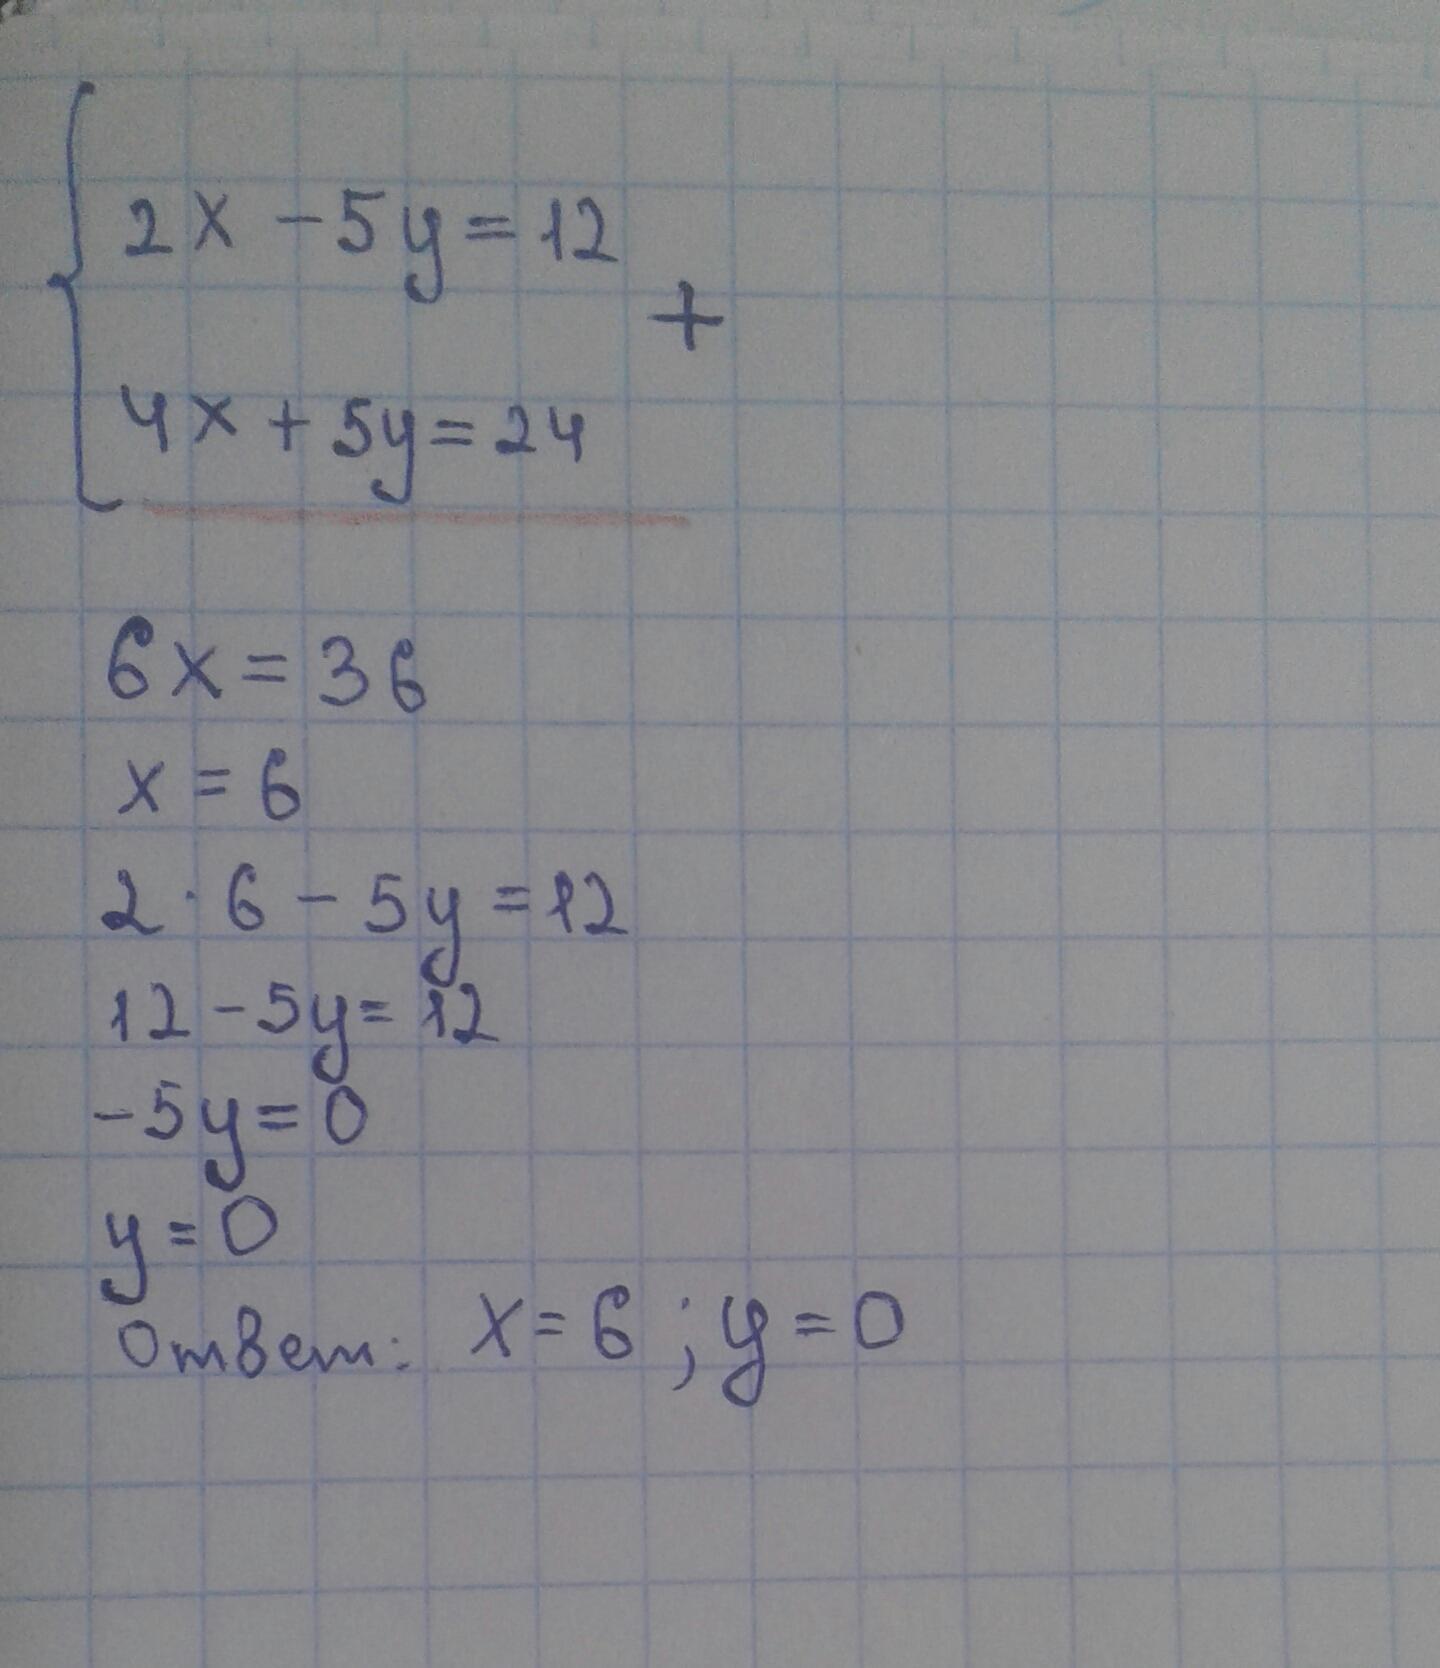 2x - 5y = 12
+
4x + 5y = 24
6x = 36
x = 6
2 · 6 - 5y = 12
12 - 5y = 12
-5y = 0
y = 0
Ответ: x = 6 ; y = 0